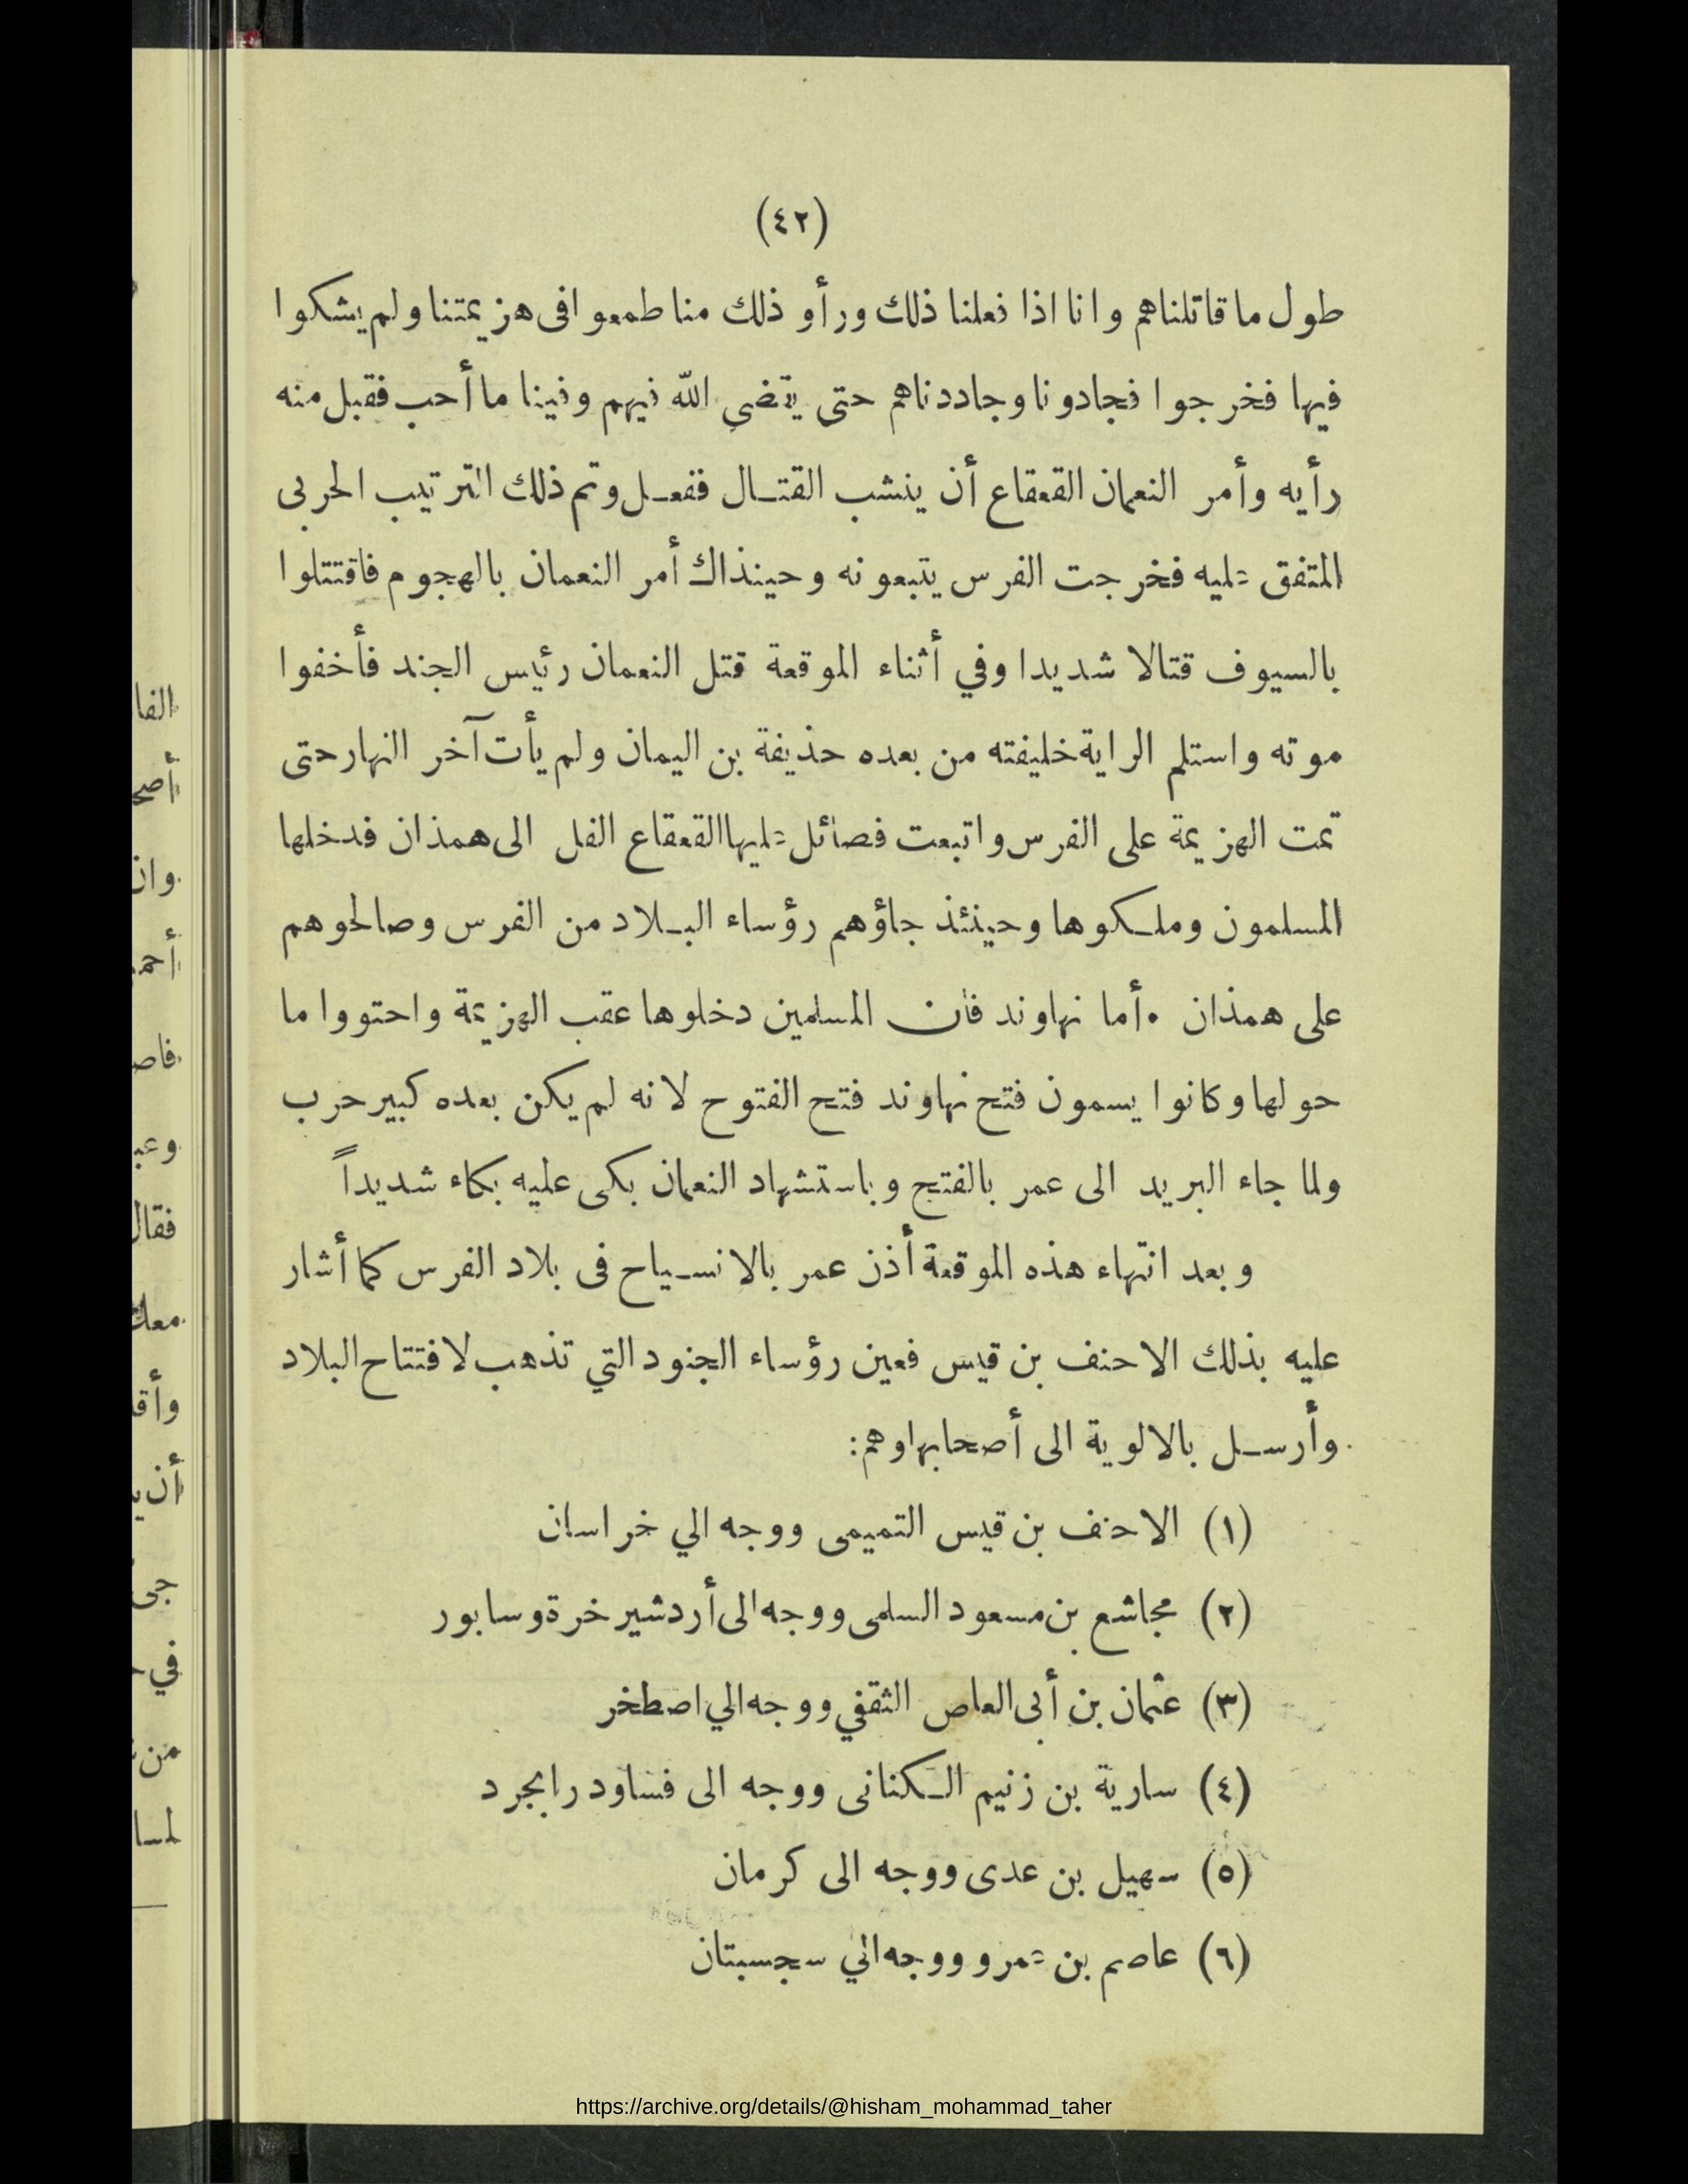 (٤٢)
طول ما قاتلناهم وانا اذا فعلنا ذلك ورأو ذلك منا طمعوا فى هزيمتنا ولم يشكوا
فيها فخرجوا فجادونا وجاددناهم حتى يقضي الله فيهم وفينا ما أحب فقبل منه
رأيه وأمر النعمان القعقاع أن ينشب القتال ففعل وتم ذلك الترتيب الحربى
المتفق عليه فخرجت الفرس يتبعونه وحينذاك أمر النعمان بالهجوم فاقتتلوا
بالسيوف قتالا شديدا وفي أثناء الموقعة قتل النعمان رئيس الجند فأخفوا
موته واستلم الراية خليفته من بعده حذيفة بن اليمان ولم يأت آخر النهار حتى
تمت الهزيمة على الفرس واتبعت فصائل عليها القعقاع الفل الى همذان فدخلها
المسلمون وملكوها وحينئذ جاؤهم رؤساء البلاد من الفرس وصالحوهم
على همذان . أما نهاوند فان المسلمين دخلوها عقب الهزيمة واحتووا ما
حولها وكانوا يسمون فتح نهاوند فتح الفتوح لانه لم يكن بعده كبير حرب
ولما جاء البريد الى عمر بالفتح وباستشهاد النعمان بكى عليه بكاء شديداً
وبعد انتهاء هذه الموقعة أذن عمر بالانسياح فى بلاد الفرس كما أشار
عليه بذلك الاحنف بن قيس فعين رؤساء الجنود التي تذهب لافتتاح البلاد
وأرسل بالالوية الى أصحابها وهم:
(١) الاحنف بن قيس التميمى ووجه الي خراسان
(٢) مجاشع بن مسعود السلمى ووجه الى أردشير خرة وسابور
(٣) عثمان بن أبى العاص الثقفي ووجه الي اصطخر
(٤) سارية بن زنيم الكنانى ووجه الى فساودرابجرد
(٥) سهيل بن عدى ووجه الى كرمان
(٦) عاصم بن عمرو ووجه الي سجستان
https://archive.org/details/@hisham_mohammad_taher